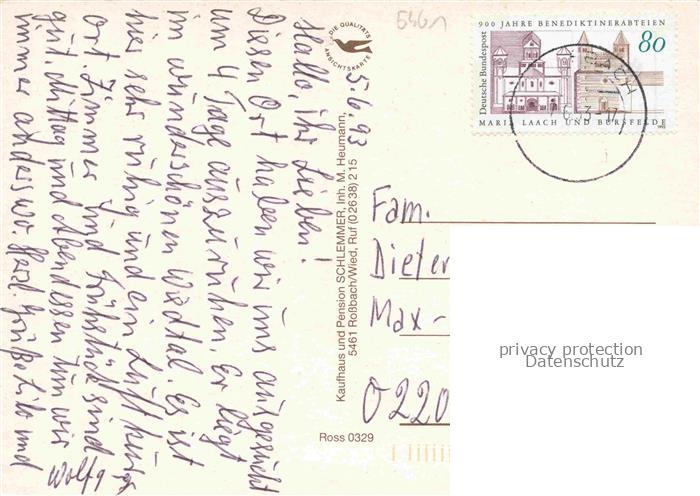 5.6.93
Hallo, ihr Lieben!
Diesen Ort haben wir uns ausgesucht
um 4 Tage auszuruhen. Er liegt
im wunderschönen Wiedtal. Es ist
hier sehr ruhig und ein Luftkur-
ort. Zimmer und Frühstück sind
gut. Mittag und Abendessen tun wir
immer anderswo. Herzl. Grüße und
Wolfg
DIE QUALITÄTS
ANSICHTSKARTE
Kaufhaus und Pension SCHLEMMER, Inh. M. Heumann,
5461 Roßbach/Wied, Ruf (02638) 2 15
Ross 0329
5461
900 JAHRE BENEDIKTINERABTEIEN
80
Deutsche Bundespost
MARIA LAACH UND BURSFELDE
Fam.
Dieter
Max-
0220
privacy protection
Datenschutz